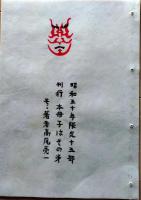 昭和五十年限定十五部
刊行 本冊子はその第
そ・著者高尾亮一